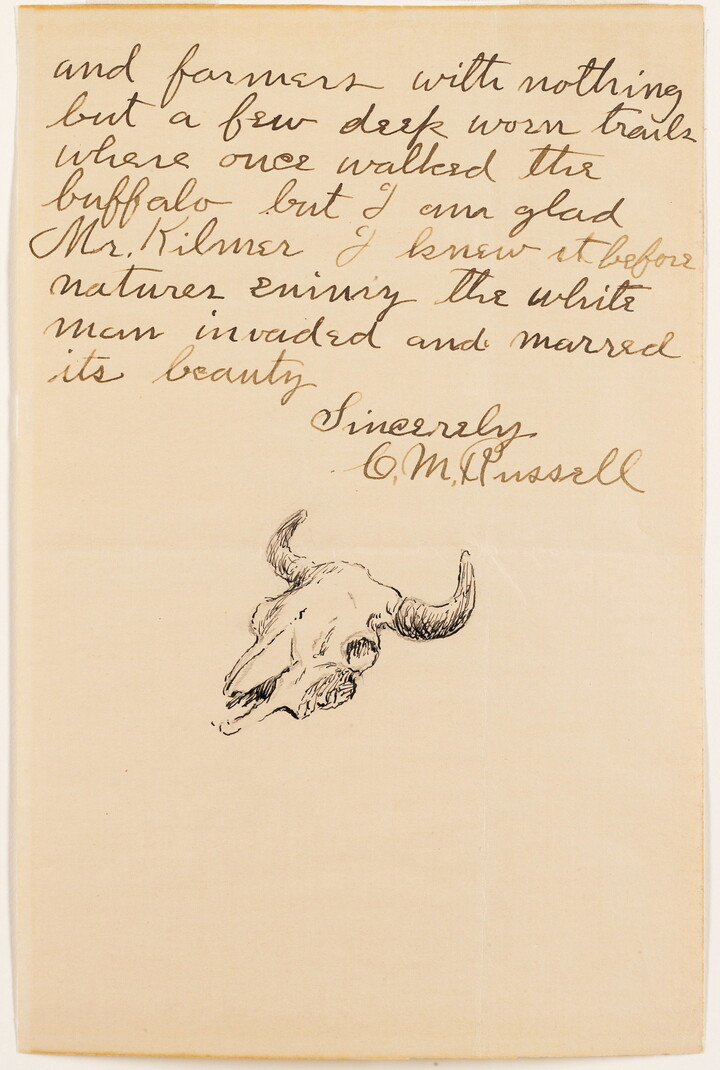 and farmers with nothing
but a few deep worn trails
where once walked the
buffalo but I am glad
Mr. Kilmer I knew it before
natures eniniy the white
man invaded and marred
its beauty
Sincerely
C. M. Russell